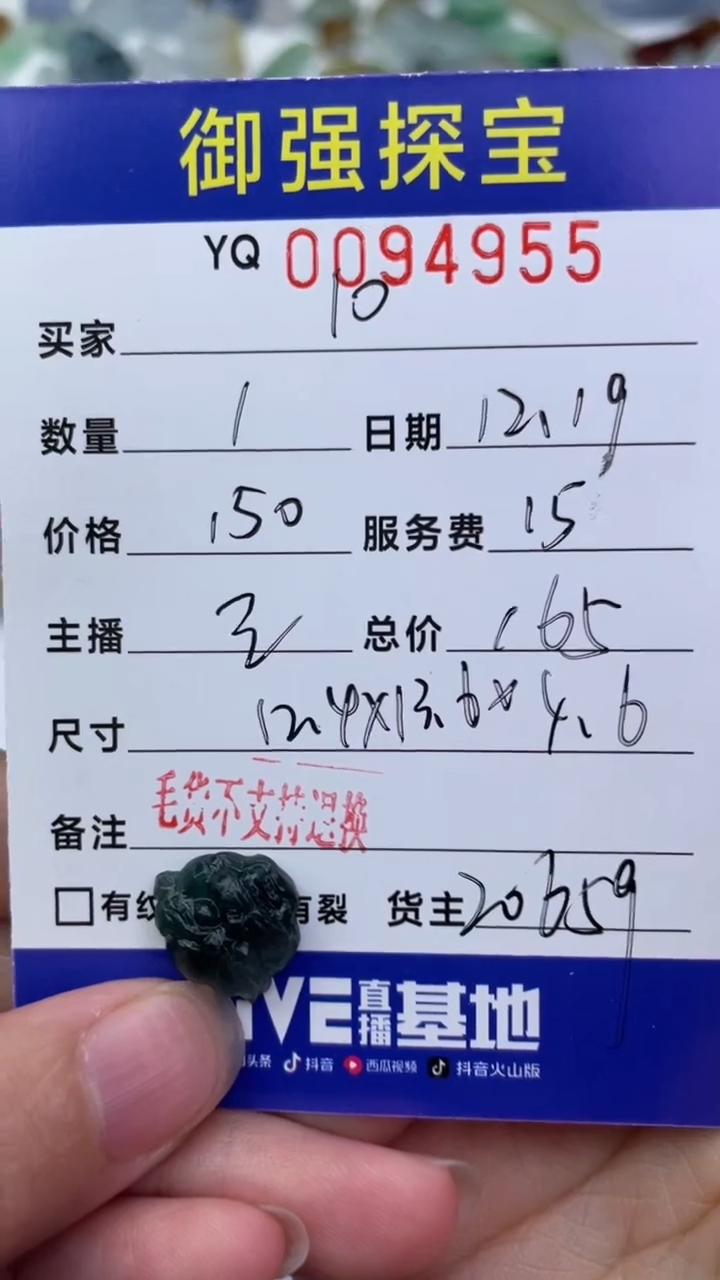 御强探宝
YQ 0094955
买家 10
数量 1 日期 12.19
价格 150 服务费 15
主播 总价 165
尺寸 12.4×13.6×4.6
备注 毛货不支持退换
□有纹 有裂 货主 20659
IVE直播基地
头条 抖音 西瓜视频 抖音火山版